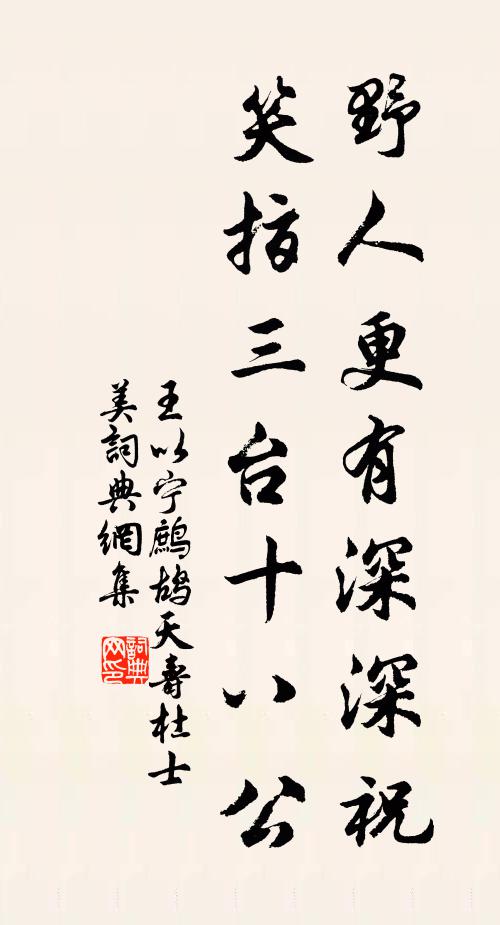 野人更有深深祝
笑指三台十八公
王以宁鷓鴣天壽杜士
美詞典網集
詞典
网印